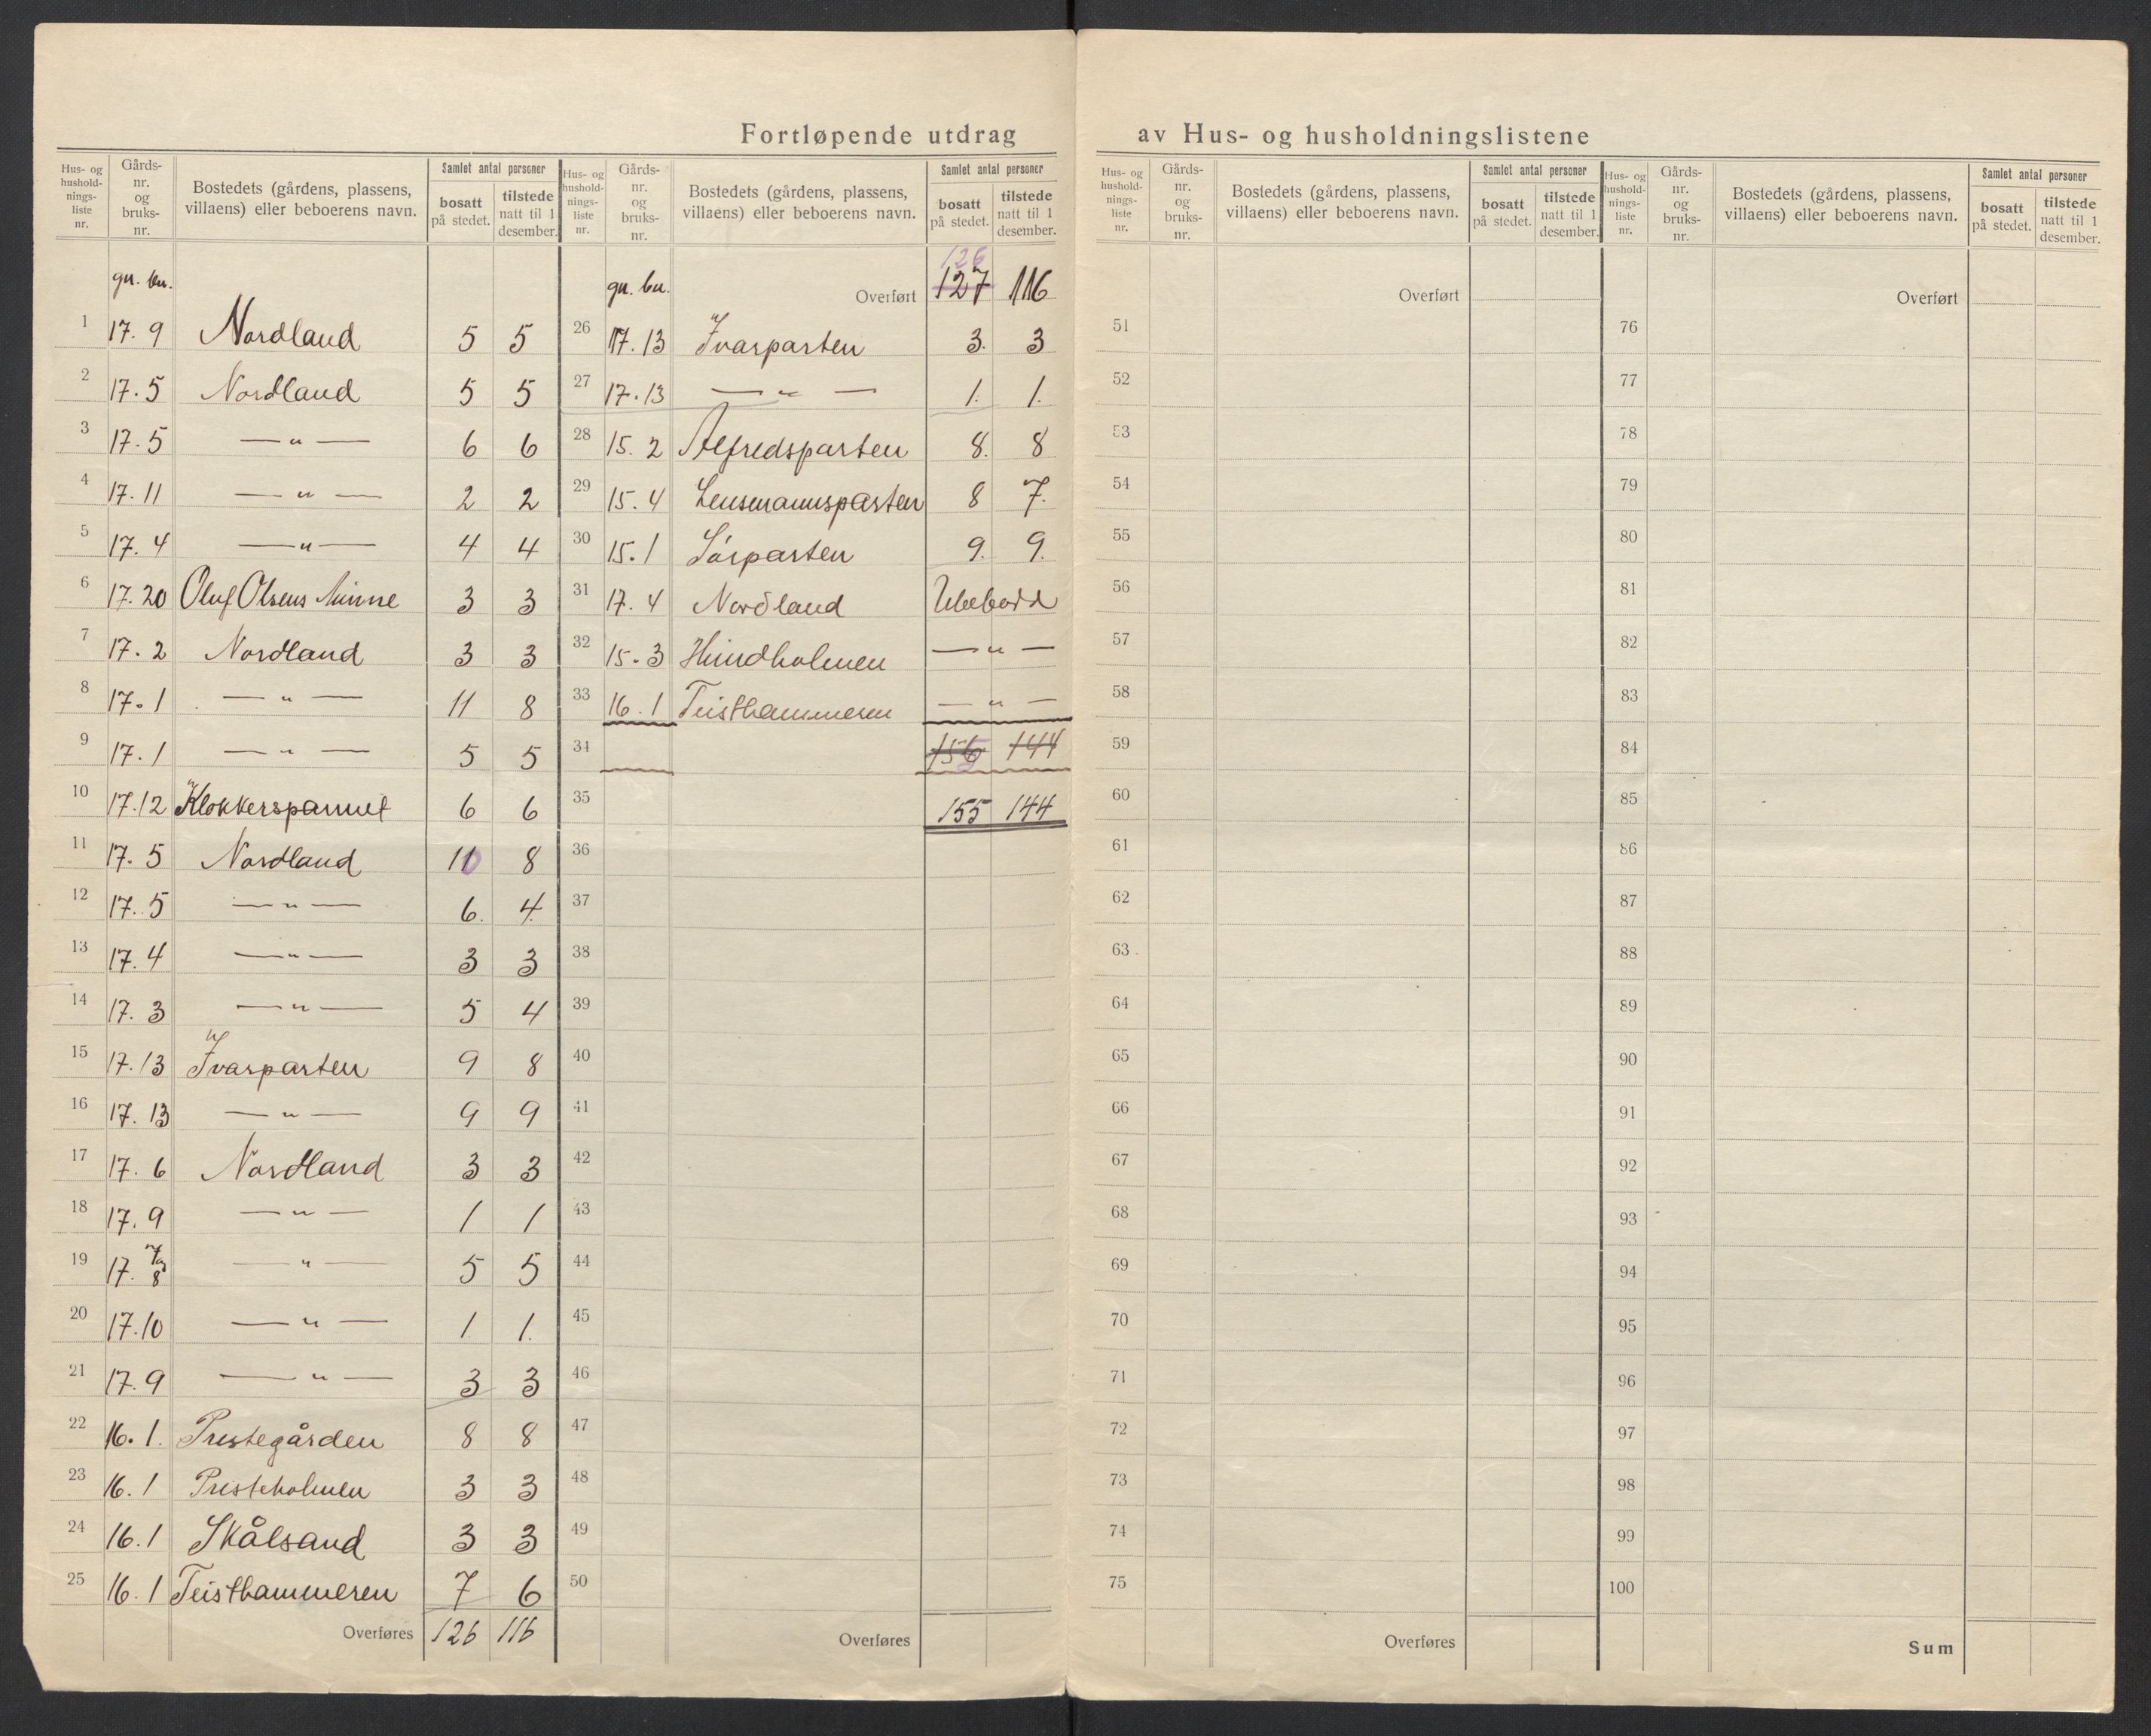 Fortløpende utdrag av Hus- og husholdningslistene
Hus- og hushold- nings- liste nr. | Gårds- nr. og bruks- nr. | Bostedets (gårdens, plassens, villaens) eller beboerens navn. | Samlet antal personer | bosatt på stedet. | tilstede natt til 1 desember.
gn. bn.
1 17. 9 Nordland 5 5
2 17. 5 Nordland 5 5
3 17. 5 — " — 6 6
4 17. 11 — " — 2 2
5 17. 4 — " — 4 4
6 17. 20 Oluf Olsens Minne 3 3
7 17. 2 Nordland 3 3
8 17. 1 — " — 11 8
9 17. 1 — " — 5 5
10 17. 12 Klokkerspannet 6 6
11 17. 5 Nordland 10 8
12 17. 5 — " — 6. 4
13 17. 4 — " — 3 3
14 17. 3 — " — 5 4
15 17. 13 Ivarparten 9 8
16 17. 13 — " — 9 9
17 17. 6 Nordland 3 3
18 17. 9 — " — 1 1
19 17. 7 og 8 — " — 5 5
20 17. 10 — " — 1 1.
21 17. 9 — " — 3 3
22 16. 1. Prestegården 8 8
23 16. 1 Presteholmen 3 3
24 16. 1 Skålsand 3 3
25 16. 1 Teisthammeren 7 6
Overføres 126 116
Hus- og hushold- nings- liste nr. | Gårds- nr. og bruks- nr. | Bostedets (gårdens, plassens, villaens) eller beboerens navn. | Samlet antal personer | bosatt på stedet. | tilstede natt til 1 desember.
126
gn. bn. Overført 127 116
26 17. 13 Ivarparten 3. 3
27 17. 13 — " — 1. 1.
28 15. 2 Alfredsparten 8. 8
29 15. 4 Lensmannsparten 8 7.
30 15. 1 Sørparten 9. 9.
31 17. 4 Nordland Ubebodd
32 15. 3 Hundholmen — " —
33 16. 1 Teisthammeren — " —
34 156 144
35 155 144
36
37
38
39
40
41
42
43
44
45
46
47
48
49
50
Overføres
Hus- og hushold- nings- liste nr. | Gårds- nr. og bruks- nr. | Bostedets (gårdens, plassens, villaens) eller beboerens navn. | Samlet antal personer | bosatt på stedet. | tilstede natt til 1 desember.
Overført
51
52
53
54
55
56
57
58
59
60
61
62
63
64
65
66
67
68
69
70
71
72
73
74
75
Overføres
Hus- og hushold- nings- liste nr. | Gårds- nr. og bruks- nr. | Bostedets (gårdens, plassens, villaens) eller beboerens navn. | Samlet antal personer | bosatt på stedet. | tilstede natt til 1 desember.
Overført
76
77
78
79
80
81
82
83
84
85
86
87
88
89
90
91
92
93
94
95
96
97
98
99
100
Sum